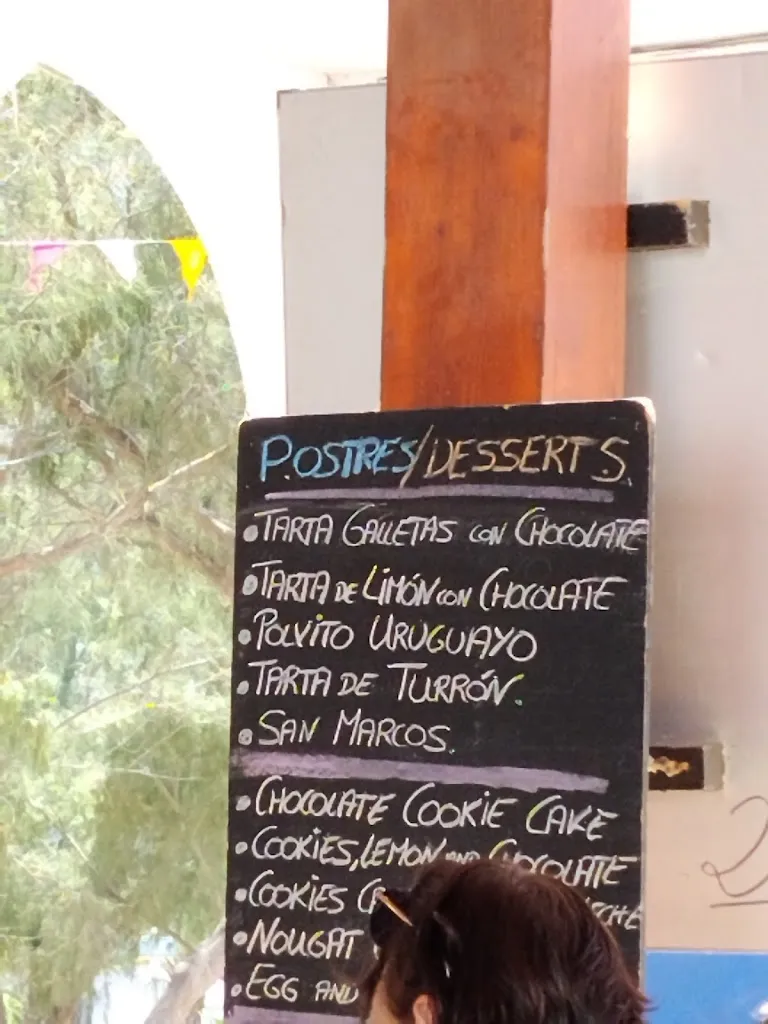 POSTRES/DESSERTS
• TARTA GALLETAS CON CHOCOLATE
• TARTA DE LIMÓN CON CHOCOLATE
• POLVITO URUGUAYO
• TARTA DE TURRÓN.
• SAN MARCOS.
• CHOCOLATE COOKIE CAKE
• COOKIES, LEMON AND CHOCOLATE
• COOKIES
• NOUGAT
• EGG AND